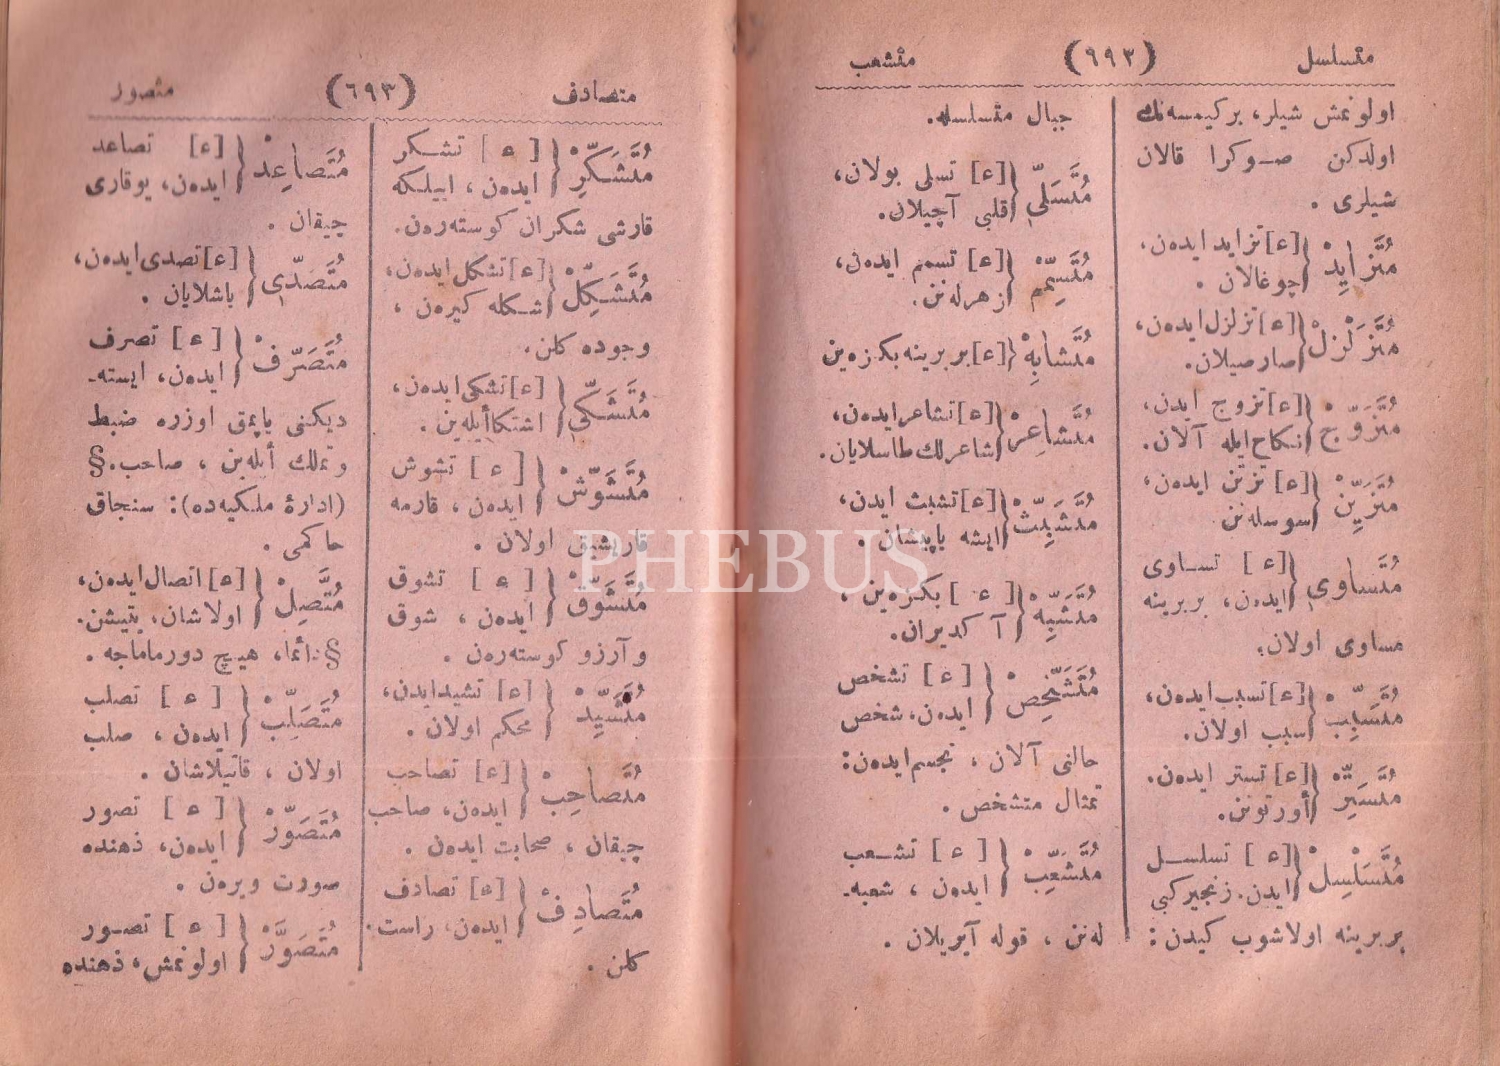 متسلسل (٦٩٣) متشعب
اولونمش شيلر، بر كيمسه نك
اولدكن صوكرا قالان
شيلرى .
مُتَزايِدْ [ء] تزايد ايده‌ن،
چوغالان .
مُتَزَلْزِلْ [ء] تزلزل ايده‌ن،
صارصيلان.
مُتَزَوِّجْ [ء] تزوج ايدن،
نكاح ايله آلان.
مُتَزَيِّنْ [ء] تزيّن ايده‌ن،
سوسله‌نن
مُتَساوِى [ء] تساوى
ايده‌ن، بربرينه
مساوى اولان.
مُتَسَبِّبْ [ء] تسبب ايده‌ن،
سبب اولان.
مُتَسَتِّرْ [ء] تستر ايده‌ن.
أورتونن.
مُتَسَلْسِلْ [ء] تسلسل
ايدن. زنجير كبى
بربرينه اولاشوب كيدن :
جبال متسلسله.
مُتَسَلِّى [ء] تسلى بولان،
قلبى آچيلان.
مُتَسَمِّمْ [ء] تسمم ايده‌ن،
زهرله‌نن.
مُتَشابِهْ [ء] بربرينه بكزه‌ين
مُتَشاعِرْ [ء] تشاعر ايده‌ن،
شاعرلك طاسلايان.
مُتَشَبِّثْ [ء] تشبث ايدن،
ايشه ياپيشان .
مُتَشَبِّهْ [ء] بكزه‌ين ،
آكديران.
مُتَشَخِّصْ [ء] تشخص
ايده‌ن، شخص
حالنى آلان ، تجسم ايده‌ن :
تمثال متشخص .
مُتَشَعِّبْ [ء] تشعب
ايده‌ن ، شعبه‌ـ
له‌نن ، قوله آيريلان .
متصادف (٦٩٣) متصور
مُتَشَكِّرْ [ء] تشكر
ايده‌ن ، اييلكه
قارشى شكران كوستره‌ن.
مُتَشَكِّلْ [ء] تشكل ايده‌ن،
شكله كيره‌ن ،
وجوده كلن.
مُتَشَكِّى [ء] تشكى ايده‌ن،
اشتكا أيله‌ين .
مُتَشَوِّشْ [ء] تشوش
ايده‌ن ، قارمه
قاريشيق اولان .
مُتَشَوِّقْ [ء] تشوق
ايده‌ن ، شوق
و آرزو كوستره‌ن .
مُتَشَيِّدْ [ء] تشيد ايدن،
محكم اولان .
مُتَصاحِبْ [ء] تصاحب
ايده‌ن، صاحب
چيقان ، صحابت ايده‌ن .
مُتَصادِفْ [ء] تصادف
ايده‌ن، راست
كلن .
مُتَصاعِدْ [ء] تصاعد
ايده‌ن، يوقارى
چيقان .
مُتَصَدِّى [ء] تصدى ايده‌ن،
باشلايان .
مُتَصَرِّفْ [ء] تصرف
ايده‌ن، ايسته‌ـ
ديكنى ياپمق اوزره ضبط
و تملك أيله‌ين ، صاحب. §
(ادارۀ ملكيه‌ده) : سنجاق
حاكمى .
مُتَّصِلْ [ء] اتصال ايده‌ن،
اولاشان، يتيشن.
§ دائما، هيچ دورماماجه .
مُتَصَلِّبْ [ء] تصلب
ايده‌ن ، صلب
اولان ، قاتيلاشان .
مُتَصَوِّرْ [ء] تصور
ايده‌ن، ذهنده
صورت ويره‌ن .
مُتَصَوَّرْ [ء] تصور
اولونمش، ذهنده
PHEBUS